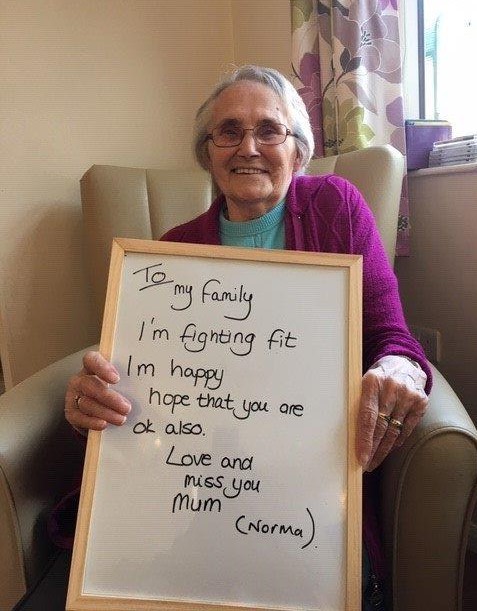 To
my family
I'm fighting fit
Im happy
hope that you are
ok also.
Love and
miss you
Mum
(Norma).